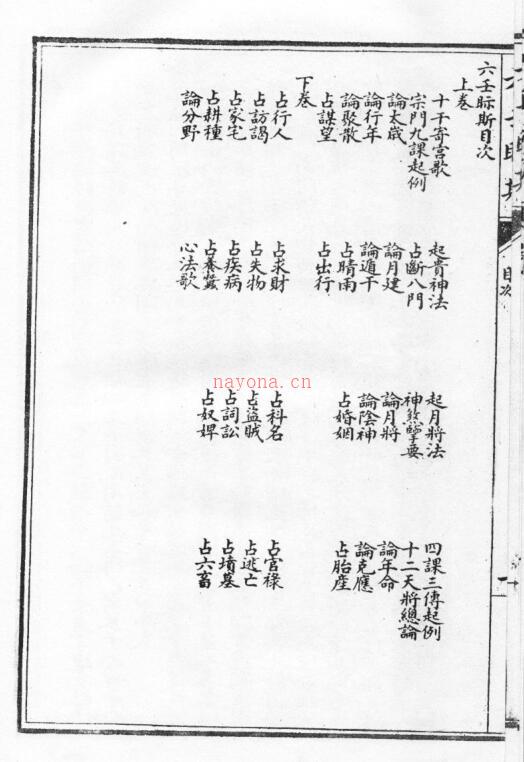 六壬眎斯目次
上卷
十干寄宮歌 起貴神法 起月將法 四課三傳起例
宗門九課起例 占斷八門 神煞擧要 十二天將總論
論太歲 論月建 論月將 論年命
論行年 論遁干 論陰神 論克應
論聚散 占晴雨
占謀望 占出行 占婚姻 占胎產
下卷
占行人 占求財 占科名 占官祿
占訪謁 占失物 占盜賊 占逃亡
占家宅 占疾病 占詞訟 占墳墓
占耕種 占養蠶 占奴婢 占六畜
論分野 心法歌
目次
一
nayona.cn